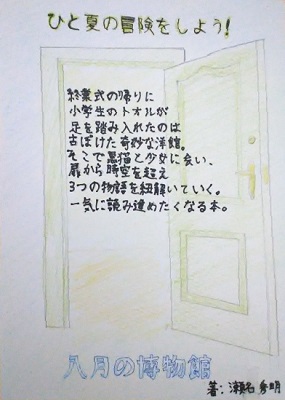 ひと夏の冒険をしよう!
終業式の帰りに
小学生のトオルが
足を踏み入れたのは
古ぼけた奇妙な洋館。
そこで黒猫と少女に会い、
扉から時空を超え
3つの物語を紐解いていく。
一気に読み進めたくなる本。
八月の博物館
著:瀬名秀明